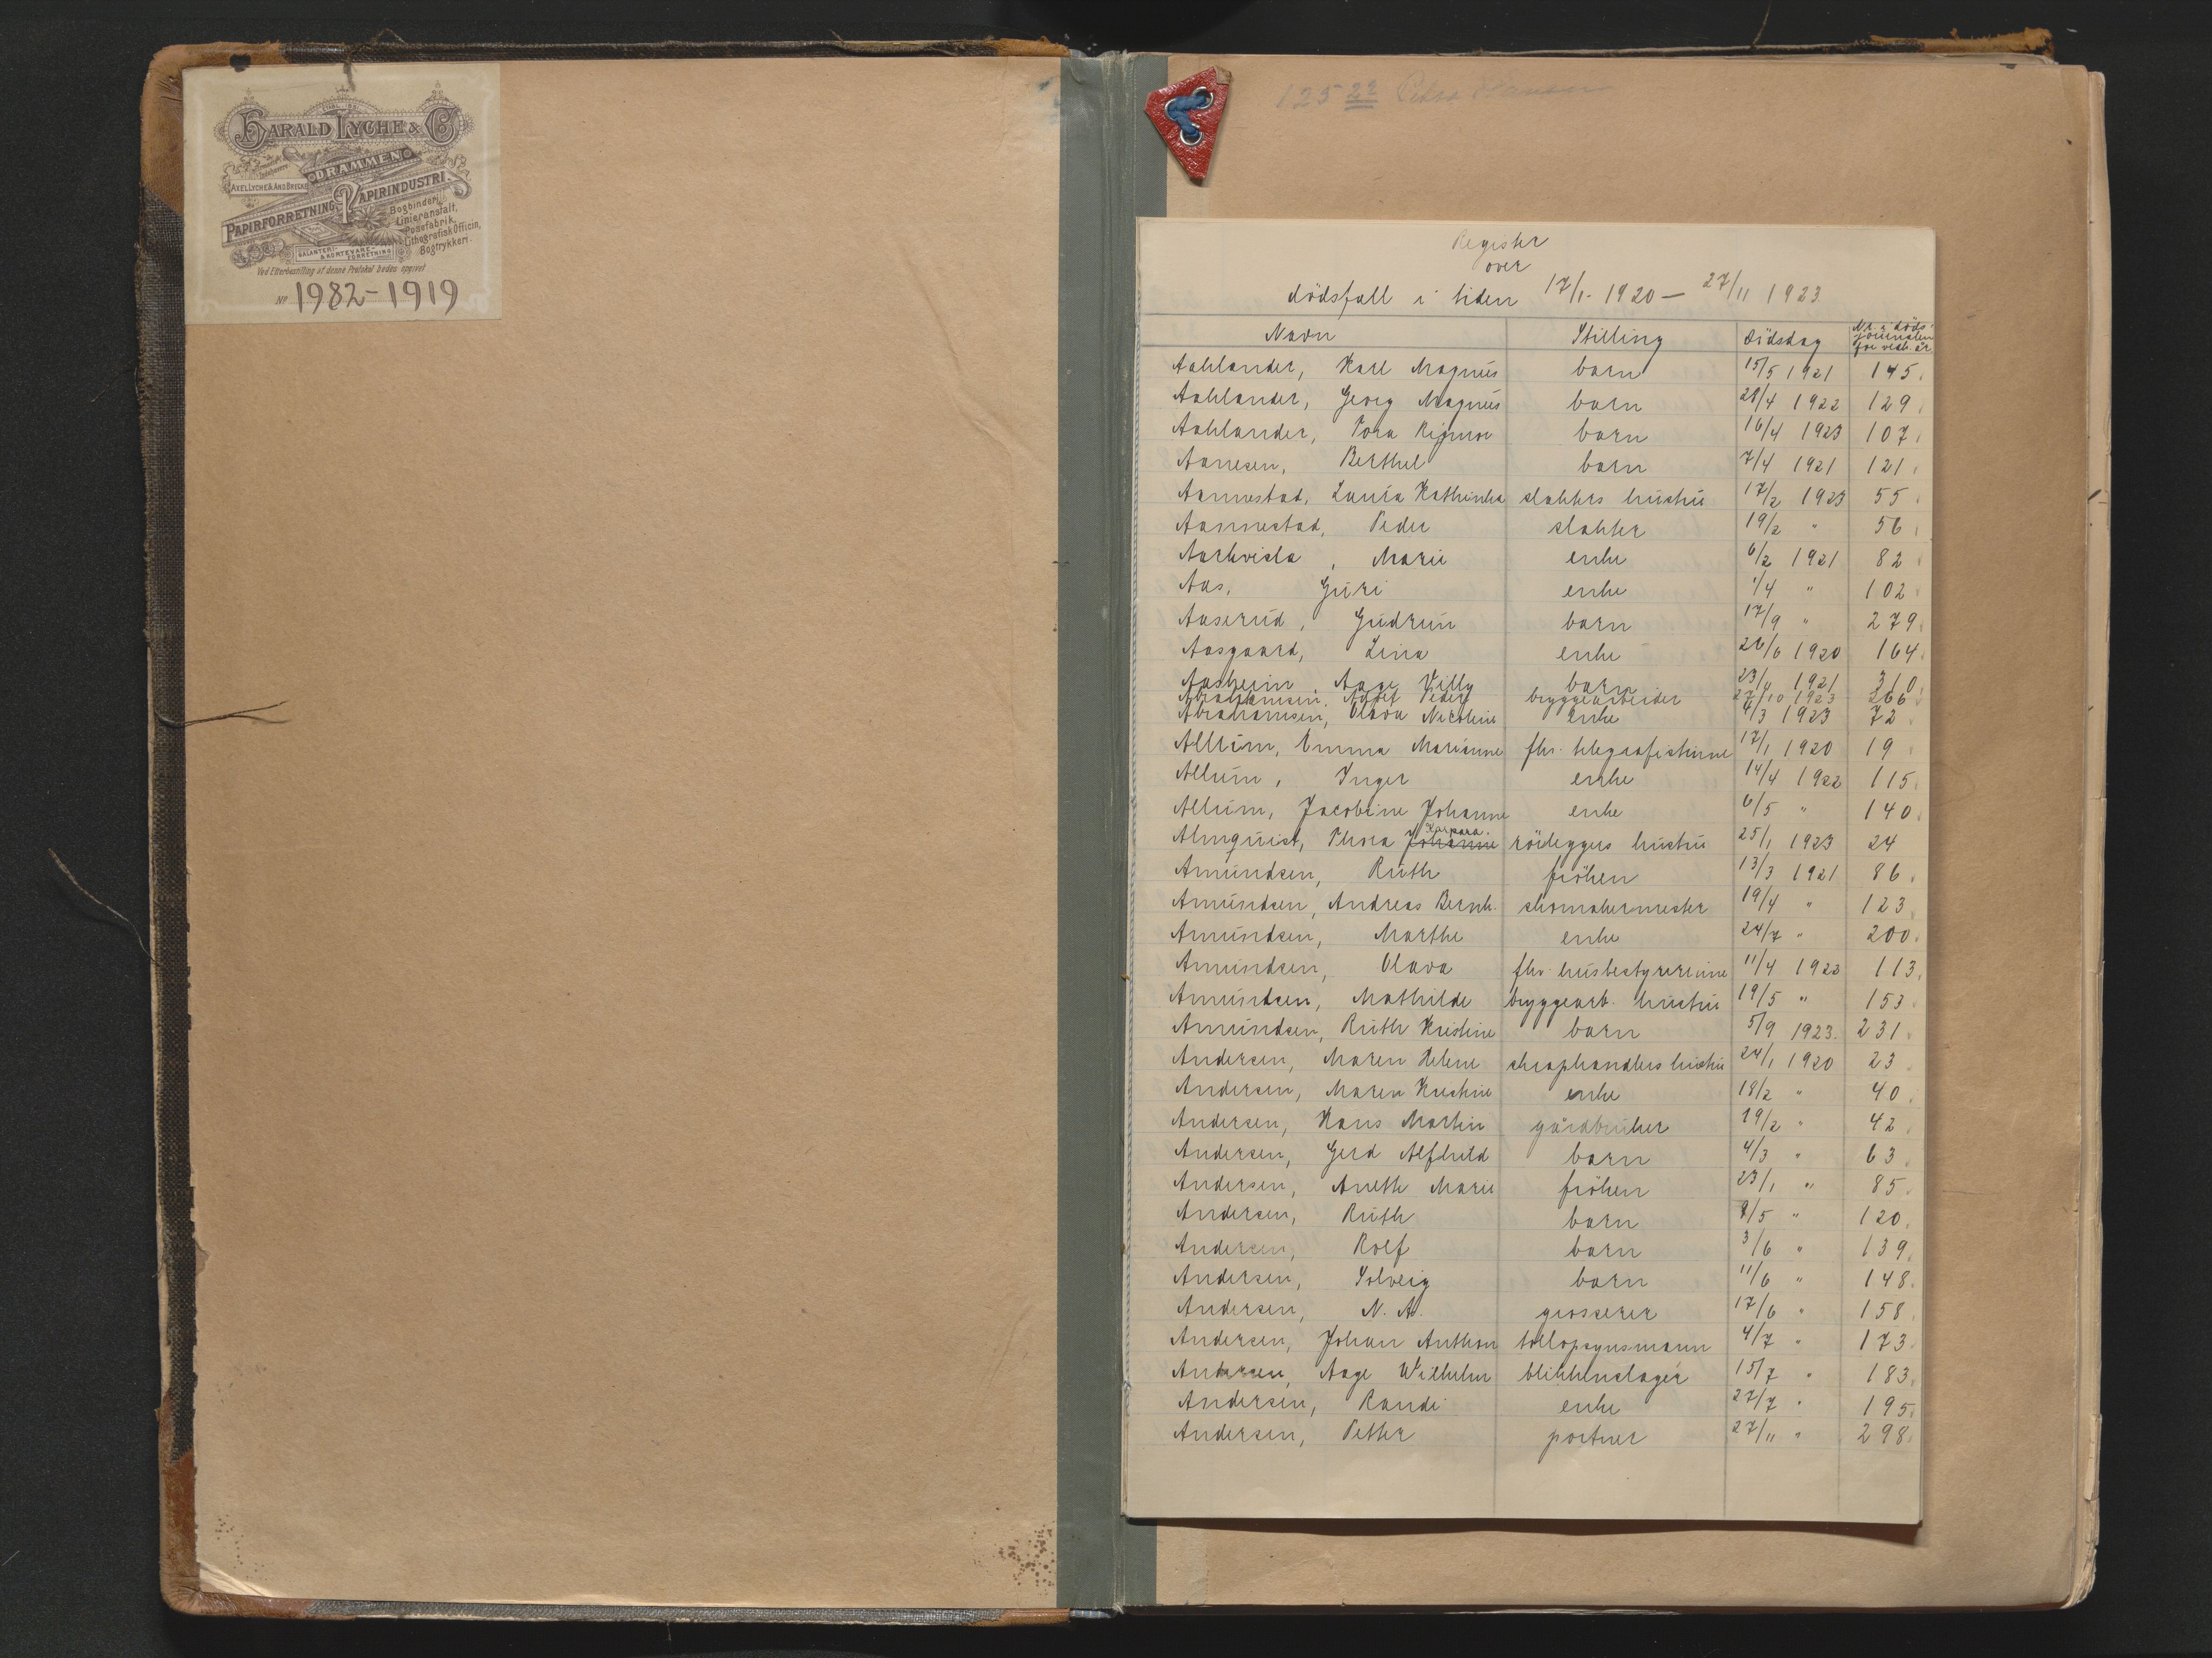 HARALD LYCHE & Co
DRAMMEN
AXEL LYCHE & AND. BRICKE
PAPIRFORRETNING PAPIRINDUSTRI
Bogbinderi,
Linieranstalt,
Posefabrik,
Lithografisk Officin,
Bogtrykkeri.
GALANTERI- & KORTEVARE-FORRETNING
Ved Efterbestilling af denne Protokol bedes opgivet
No 1982-1919
125 22
Register
over
dödsfall i tiden 17/1 1920 — 27/11 1923.
Navn Stilling Dödsdag Nr. i döds-journalen for vedk. år
Aahlander, Karl Magnus barn 15/5 1921 145.
Aahlander, Georg Magnus barn 28/4 1922 129.
Aahlander, Tora Rigmor barn 16/4 1923 107.
Aanesen, Berthel barn 7/4 1921 121.
Aannestad, Laura Kathinka slakters hustru 17/2 1923 55.
Aannestad, Peder slakter 19/2 " 56.
Aarkvisla, Marie enke 6/2 1921 82.
Aas, Guri enke 1/4 " 102.
Aaserud, Gudrun barn 17/9 " 279.
Aasgaard, Lina enke 26/6 1920 164.
Aasheim, Aage Villy barn 23/11 1921 310.
Abrahamsen, Adolf Peder bryggearbeider 27/10 1923 266.
Abrahamsen, Olava Nicoline enke 4/3 1923 72.
Allum, Emma Marianne fhv. telegrafistinne 17/1 1920 19
Allum, Inger enke 14/4 1922 115.
Allum, Jacobine Johanne enke 6/5 " 140.
Almquist, Thora Johanne Karpara. rörleggers hustru 25/1 1923 24
Amundsen, Ruth fröken 13/3 1921 86.
Amundsen, Andreas Bernh. skomakermester 19/4 " 123.
Amundsen, Marthe enke 24/7 " 200.
Amundsen, Olava fhv. husbestyrerinne 11/4 1922 113.
Amundsen, Mathilde bryggearb. hustru 19/5 " 153.
Amundsen, Ruth Kristine barn 5/9 1923. 231.
Andersen, Maren Helene skraphandlers hustru 24/1 1920 23.
Andersen, Maren Kristine enke 18/2 " 40.
Andersen, Hans Martin gårdbruker 19/2 " 42.
Andersen, Gerd Alfhild barn 4/3 " 63.
Andersen, Anette Marie fröken 23/1 " 85.
Andersen, Ruth barn 8/5 " 120.
Andersen, Rolf barn 3/6 " 139.
Andersen, Solveig barn 11/6 " 148.
Andersen, N. A. grosserer 17/6 " 158.
Andersen, Johan Anthon tollopsynsmann 4/7 " 173.
Andersen, Aage Wilhelm blikkenslager 15/7 " 183.
Andersen, Randi enke 27/7 " 195.
Andersen, Petter portner 27/11 " 298.